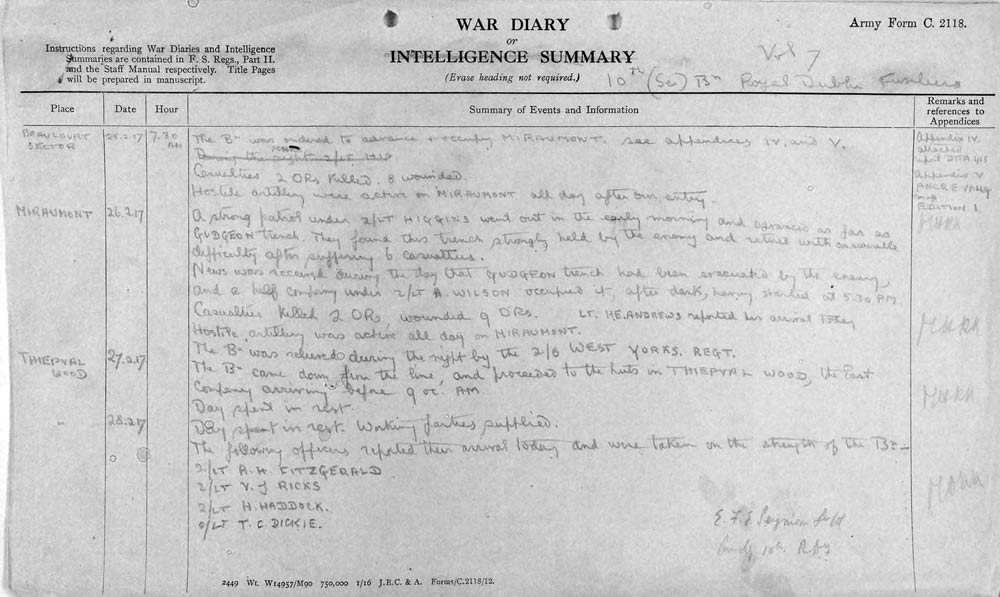 WAR DIARY
or
INTELLIGENCE SUMMARY
(Erase heading not required.)
Army Form C. 2118.
Instructions regarding War Diaries and Intelligence
Summaries are contained in F. S. Regs., Part II.
and the Staff Manual respectively. Title Pages
will be prepared in manuscript.
Vol 7
10th (Ser) Bn Royal Dublin Fusiliers
Place Date Hour Summary of Events and Information Remarks and
references to
Appendices
BEAUCOURT SECTOR 25.2.17 7.30 AM The Bn was ordered to advance & occupy MIRAUMONT. see appendices IV. and V.
During the night 2/LT
Casualties 2 ORs killed. 8 wounded.
Hostile artillery were active on MIRAUMONT all day after our entry.
Appendix IV.
attached
Appendix V
ANCRE VALLEY
map
EDITION 1.
MIRAUMONT 26.2.17 A strong patrol under 2/LT HIGGINS went out in the early morning and advanced as far as
GUDGEON trench. They found this trench strongly held by the enemy and return with considerable
difficulty after suffering 6 casualties.
News was received during the day that GUDGEON trench had been evacuated by the enemy
and a half company under 2/LT A. WILSON occupied it, after dark, having started at 5.30 PM.
Casualties killed 2 ORs, wounded 9 ORs. LT. H.E. ANDREWS reported his arrival today
Hostile artillery was active all day on MIRAUMONT.
The Bn was relieved during the night by the 2/6 WEST YORKS. REGT.
THIEPVAL WOOD 27.2.17 The Bn came down from the line, and proceeded to the huts in THIEPVAL WOOD, the last
Company arriving before 9 oc. AM.
Day spent in rest.
" 28.2.17 Day spent in rest. Working parties supplied.
The following officers reported their arrival today and were taken on the strength of the Bn –
2/LT A. H. FITZGERALD
2/LT V. J RICKS
2/LT H. HADDOCK.
2/LT T. C. DICKIE.
E. F. E. Seymour
10th RDF
2449 Wt. W14957/M90 750,000 1/16 J.B.C. & A. Forms/C.2118/12.